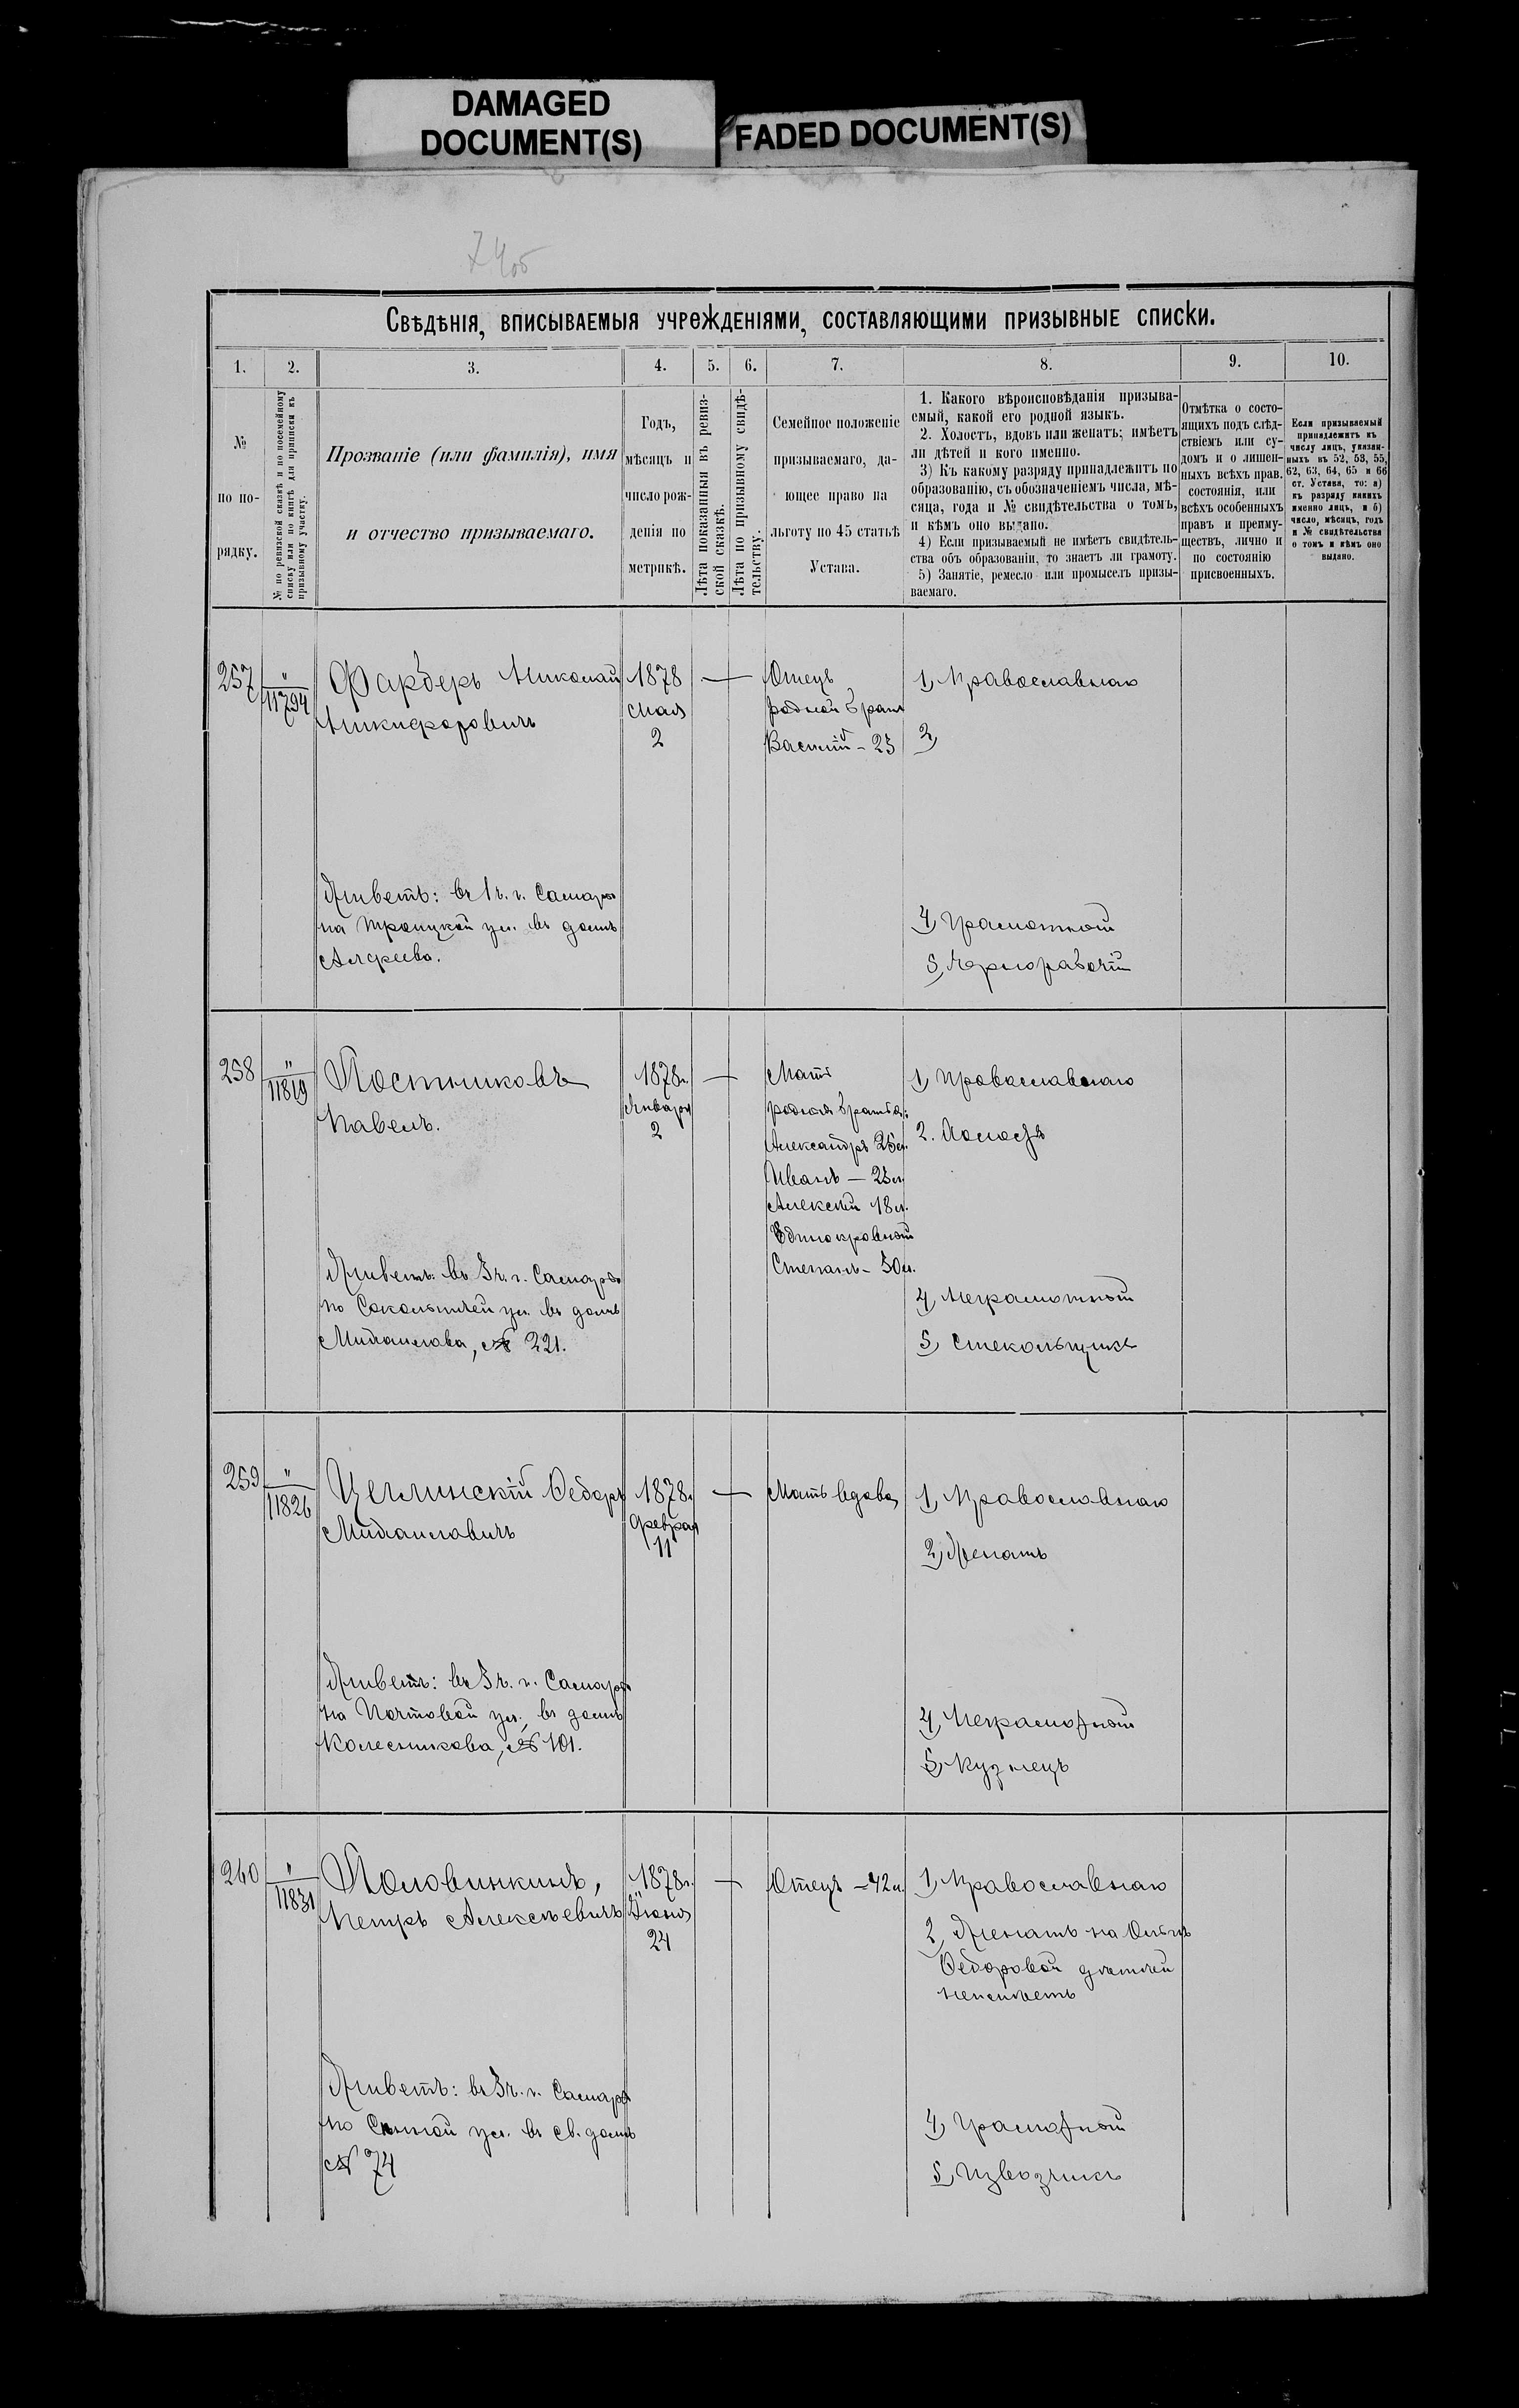 DAMAGED
DOCUMENT(S)
FADED DOCUMENT(S)
74об
Свѣдѣнія, вписываемыя учрежденіями, составляющими призывные списки.
1.
2.
3.
4.
5.
6.
7.
8.
9.
10.
№
по по-
рядку.
№ по ревизской сказкѣ и по посемейному
списку или по книгѣ для приписки къ
призывному участку.
Прозваніе (или фамилія), имя
и отчество призываемаго.
Годъ,
мѣсяцъ и
число рож-
денія по
метрикѣ.
Лѣта показанныя въ ревиз-
ской сказкѣ.
Лѣта по призывному свидѣ-
тельству.
Семейное положеніе
призываемаго, да-
ющее право на
льготу по 45 статьѣ
Устава.
1. Какого вѣроисповѣданія призыва-
емый, какой его родной языкъ.
2. Холостъ, вдовъ или женатъ; имѣетъ
ли дѣтей и кого именно.
3) Къ какому разряду принадлежитъ по
образованію, съ обозначеніемъ числа, мѣ-
сяца, года и № свидѣтельства о томъ,
и кѣмъ оно выдано.
4) Если призываемый не имѣетъ свидѣтель-
ства объ образованіи, то знаетъ ли грамоту.
5) Занятіе, ремесло или промыселъ призы-
ваемаго.
Отмѣтка о состо-
ящихъ подъ слѣд-
ствіемъ или су-
домъ и о лишен-
ныхъ всѣхъ прав.
состоянія, или
всѣхъ особенныхъ
правъ и преиму-
ществъ, лично и
по состоянію
присвоенныхъ.
Если призываемый
принадлежитъ къ
числу лицъ, указан-
ныхъ въ 52, 53, 55,
62, 63, 64, 65 и 66
ст. Устава, то: а)
къ разряду какихъ
именно лицъ, и б)
число, мѣсяцъ, годъ
и № свидѣтельства
о томъ и кѣмъ оно
выдано.
257
"
11794
Фарберъ Николай
Никифоровичъ
1878
Мая
2
—
Отецъ
родной братъ
Василій - 25
1, Православнаго
2,
Живетъ: въ 1 ч. г. Самары
на Троицкой ул. въ домѣ
4, Грамотный
5, Чернорабочій
258
"
11819
Постниковъ
Павелъ.
1878г.
Января
2
—
Мать
родныя братья:
Александръ 26 л.
Иванъ — 25 л.
Алексѣй 18 л.
Единокровный
Степанъ - 30 л.
1, Православнаго
2. Холостъ
Живетъ: въ 3 ч. г. Самары
по Сокольничей ул. въ домѣ
Михайлова, № 221.
4, Неграмотный
5, Стекольщикъ
259
"
11826
Цеглинскій Ѳедоръ
Михайловичъ
1878г.
Февраля
11
—
Мать вдова,
1, Православнаго
2, Женатъ
Живетъ: въ 3 ч. г. Самары
на Почтовой ул., въ домѣ
Колесникова, № 101.
4, Неграмотный
5, Кузнецъ
260
"
11831
Половинкинъ,
Петръ Алексѣевичъ
1878г.
Іюня
24
—
Отецъ - 42 л.
1, Православнаго
2, Женатъ на Ольгѣ
Ѳедоровой дѣтей
неимѣетъ
Живетъ: въ 3 ч. г. Самары
по Сѣнной ул. въ св. домѣ
№ 74
4, Грамотный
5, Извозчикъ